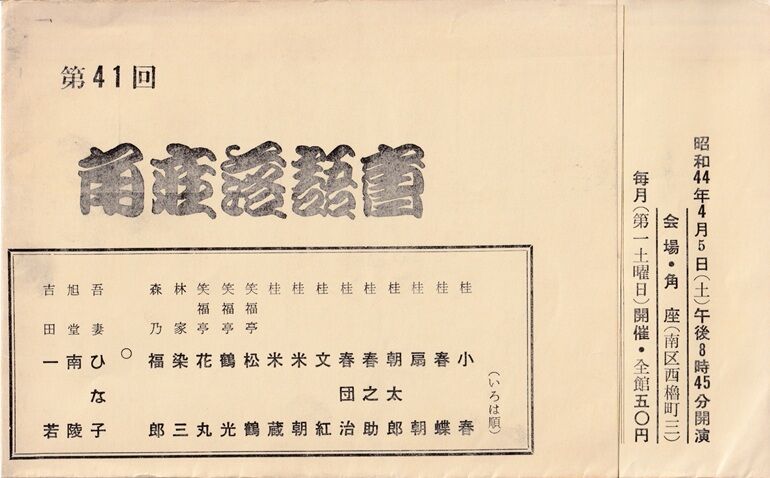 第41回
角座落語會
昭和44年4月5日(土)午後8時45分開演
会場・角座(南区西櫓町三)
毎月(第一土曜日)開催・全館五〇円
(いろは順)
桂 小春
桂 春蝶
桂 扇朝
桂 朝太郎
桂 春之助
桂 春団治
桂 文紅
桂 米朝
桂 米蔵
笑福亭 松鶴
笑福亭 鶴光
笑福亭 花丸
林家 染三
森乃 福郎
○
吾妻 ひな子
旭堂 南陵
吉田 一若